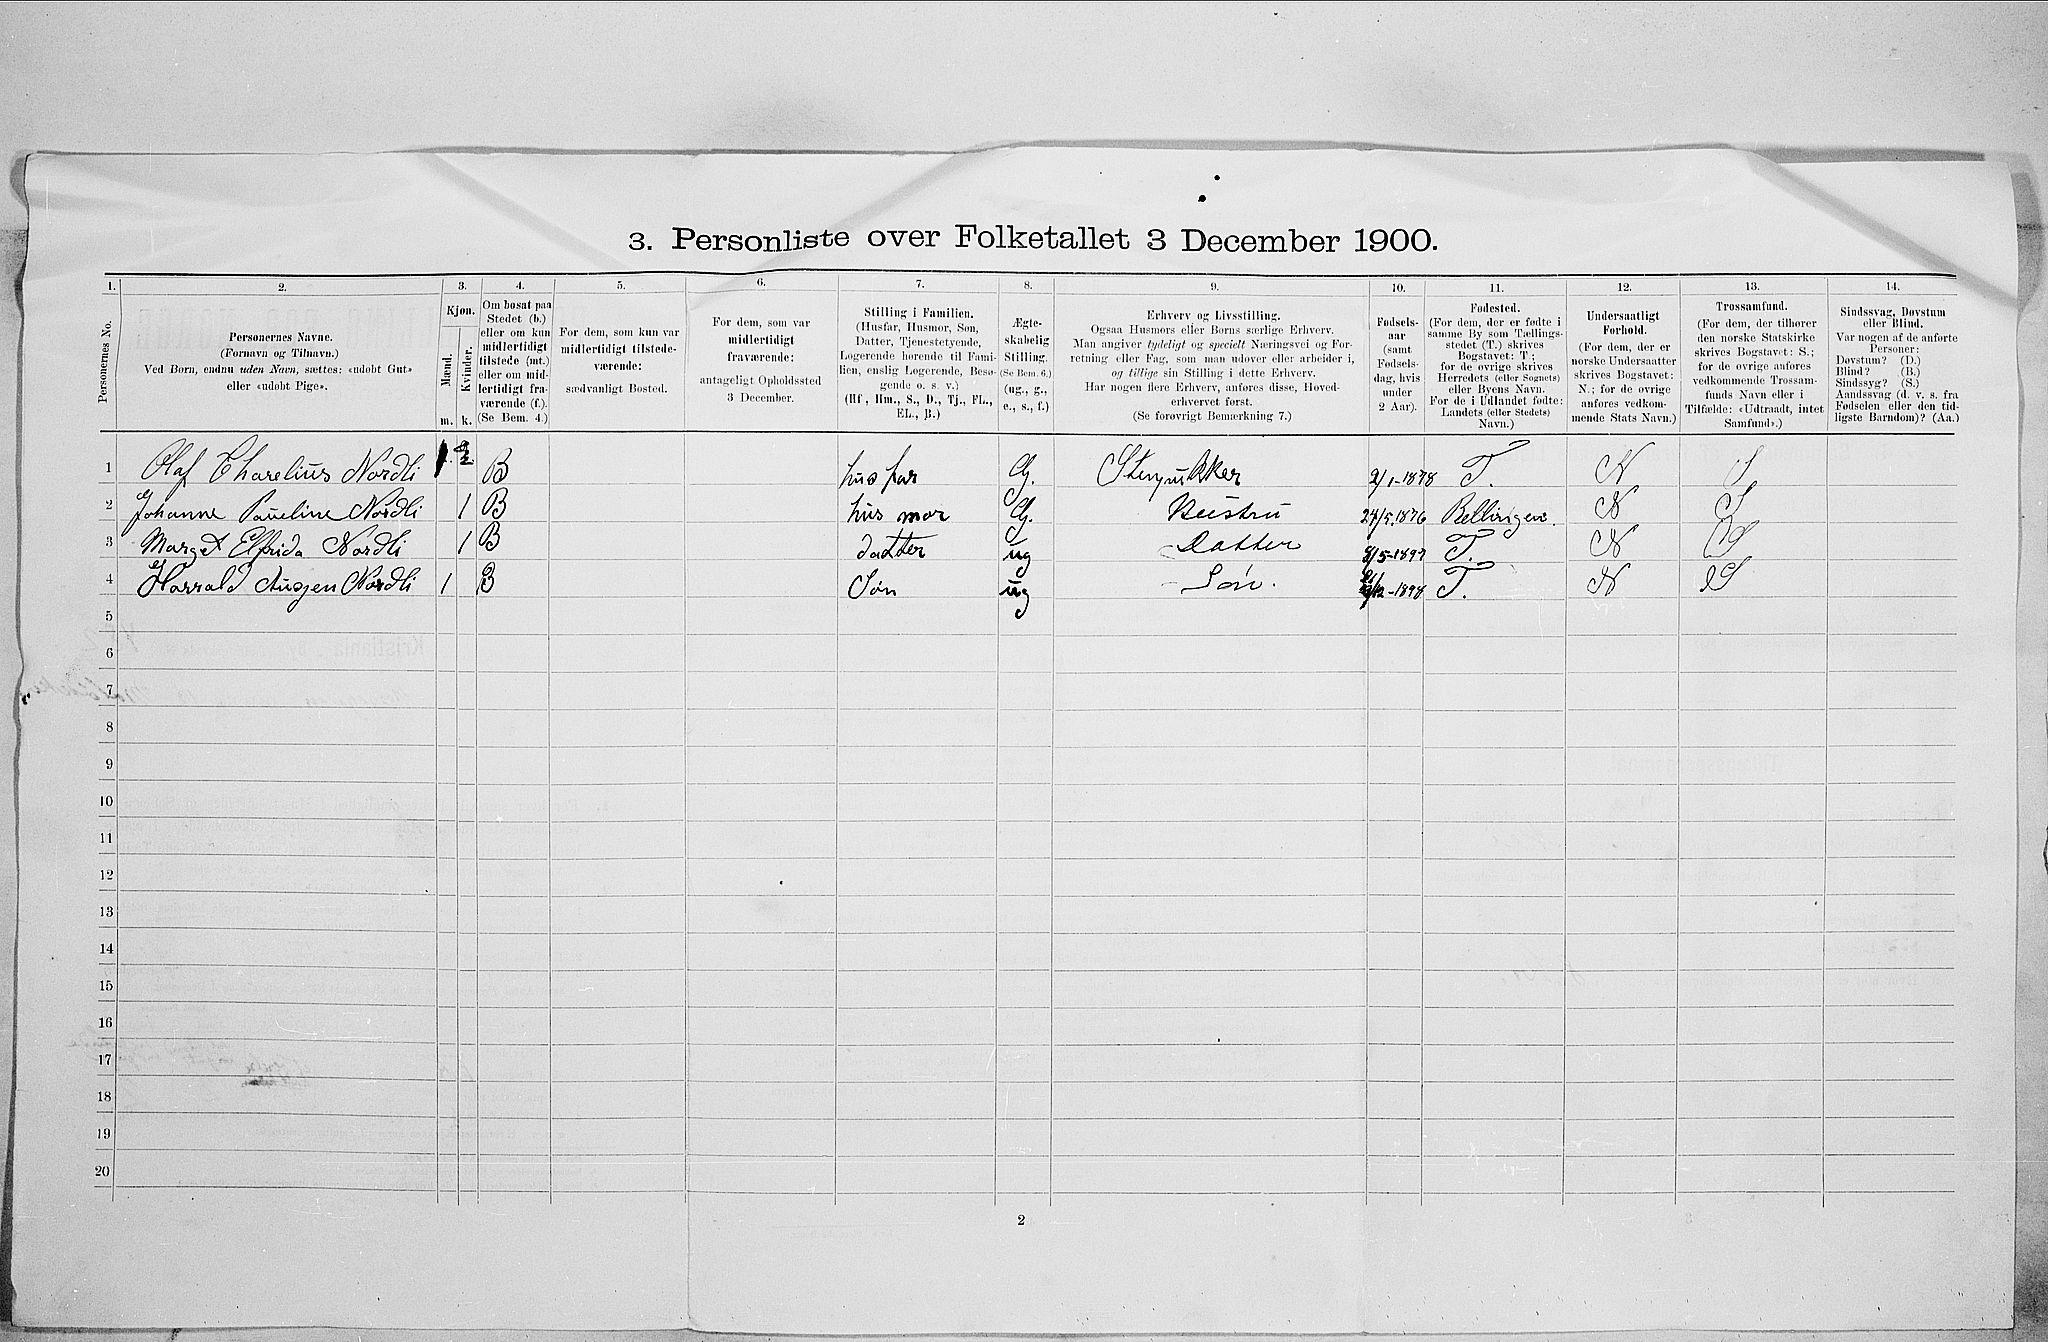 3. Personliste over Folketallet 3 December 1900.
1. 2. 3. 4. 5. 6. 7. 8. 9. 10. 11. 12. 13. 14.
Personernes No.
Personernes Navne.
(Fornavn og Tilnavn.)
Ved Børn, endnu uden Navn, sættes: «udøbt Gut»
eller «udøbt Pige».
Kjøn.
Mænd.
Kvinder.
m. k.
Om bosat paa
Stedet (b.)
eller om kun
midlertidigt
tilstede (mt.)
eller om mid-
lertidigt fra-
værende (f.).
(Se Bem. 4.)
For dem, som kun var
midlertidigt tilstede-
værende:
sædvanligt Bosted.
For dem, som var
midlertidigt
fraværende:
antageligt Opholdssted
3 December.
Stilling i Familien.
(Husfar, Husmor, Søn,
Datter, Tjenestetyende,
Logerende hørende til Fami-
lien, enslig Logerende, Besø-
gende o. s. v.)
(Hf., Hm., S., D., Tj., FL.,
EL., B.)
Ægte-
skabelig
Stilling.
(Se Bem. 6.)
(ug., g.,
e., s., f.)
Erhverv og Livsstilling.
Ogsaa Husmors eller Børns særlige Erhverv.
Man angiver tydeligt og specielt Næringsvei og For-
retning eller Fag, som man udover eller arbeider i,
og tillige sin Stilling i dette Erhverv.
Har nogen flere Erhverv, anføres disse, Hoved-
erhvervet først.
(Se forøvrigt Bemærkning 7.)
Fødsels-
aar
(samt
Fødsels-
dag, hvis
under
2 Aar).
Fødested.
(For dem, der er fødte i
samme By som Tællings-
stedet (T.) skrives
Bogstavet: T;
for de øvrige skrives
Herredets (eller Sognets)
eller Byens Navn.
For de i Udlandet fødte:
Landets (eller Stedets)
Navn.)
Undersaatligt
Forhold.
(For dem, der er
norske Undersaatter
skrives Bogstavet:
N.; for de øvrige
anføres vedkom-
mende Stats Navn.)
Trossamfund.
(For dem, der tilhører
den norske Statskirke
skrives Bogstavet: S.;
for de øvrige anføres
vedkommende Trossam-
funds Navn eller i
Tilfælde: «Udtraadt, intet
Samfund».)
Sindssvag, Døvstum
eller Blind.
Var nogen af de anførte
Personer:
Døvstum? (D.)
Blind? (B.)
Sindssyg? (S.)
Aandssvag (d. v. s. fra
Fødselen eller den tid-
ligste Barndom)? (Aa.)
1 Olaf Tharelius Nordli 1 B hus far G. 2/1-1878 T. N S
2 Johanne Paueline Nordli 1 B hus mor G. Heustru 1876 N S
3 Marget Elfrida Nordli 1 B datter ug Datter 8/5-1897 T. N S
4 Harrald Nordli 1 B Søn ug Søn. 1898 T. N S
5
6
7
8
9
10
11
12
13
14
15
16
17
18
19
20
2